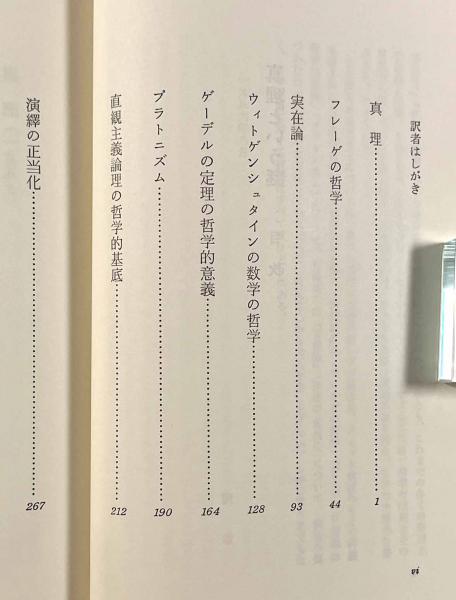 訳者はしがき
真理 1
フレーゲの哲学 44
実在論 93
ウィトゲンシュタインの数学の哲学 128
ゲーデルの定理の哲学的意義 164
プラトニズム 190
直観主義論理の哲学的基底 212
演繹の正当化 267